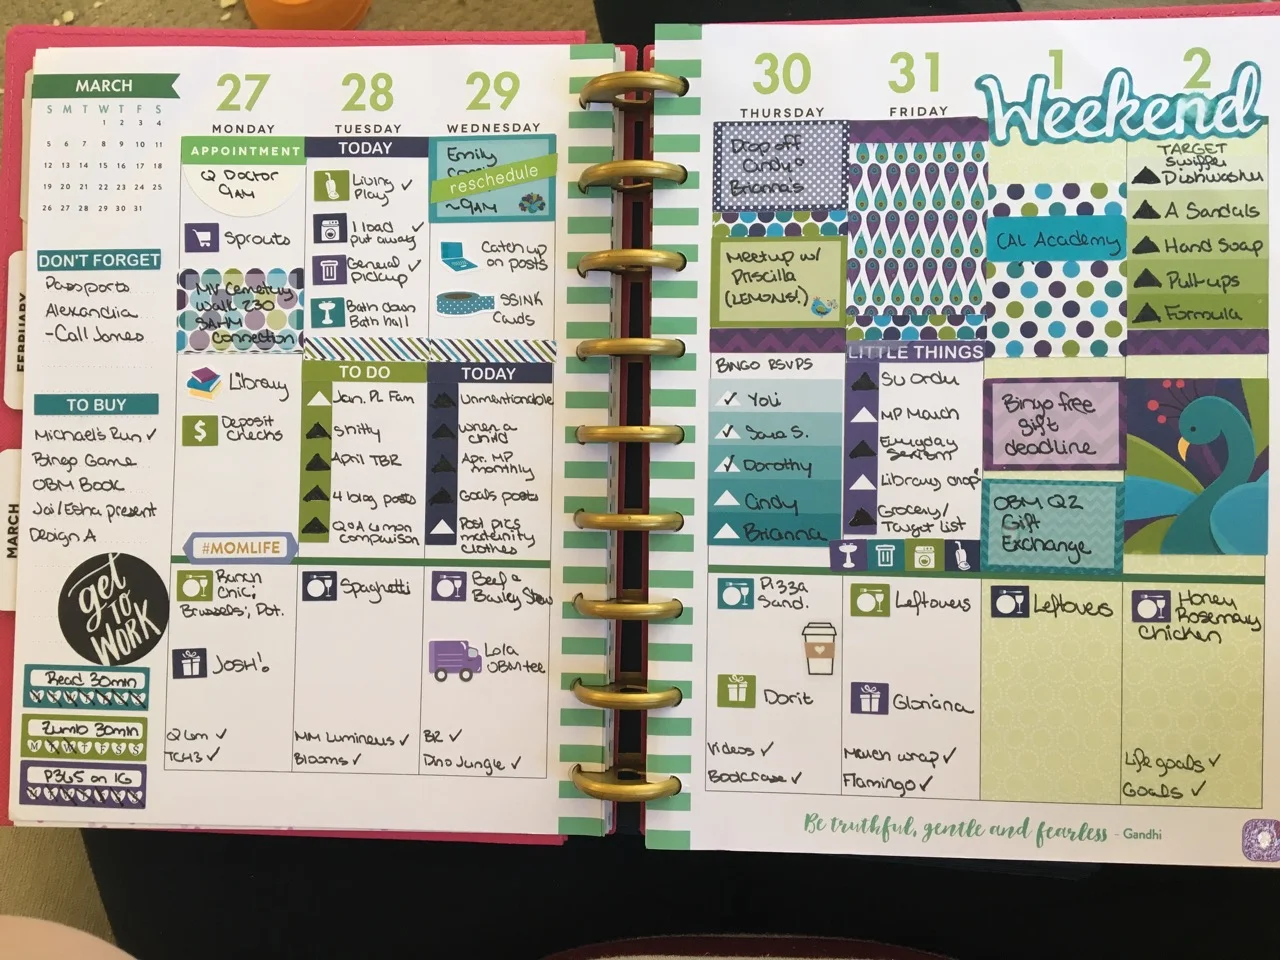 FEBRUARY
MARCH
MARCH
S M T W T F S
1 2 3 4
5 6 7 8 9 10 11
12 13 14 15 16 17 18
19 20 21 22 23 24 25
26 27 28 29 30 31
DON'T FORGET
Passports
Alexandria
-Call Jones
TO BUY
Michael's Run ✓
Bingo Game
OBM Book
Jai/Esha present
Design A
get
TO
WORK
Read 30min
Zumba 30min
M T W T F S S
P365 on IG
27
MONDAY
APPOINTMENT
Q Doctor
9AM
Sprouts
MV Cemetery
Walk 230
SAHM
Connection
Library
Deposit
Checks
#MOMLIFE
Ranch
Chic;
Brussels; Pot.
JOSH!
Q Lem ✓
TCH3 ✓
28
TUESDAY
TODAY
Living ✓
Play
1 load ✓
put away
General ✓
Pickup
Bath down
Bath hall
TO DO
Jan. PL Fam
Shitty
April TBR
4 blog posts
Q&A Lemon
comparison
Spaghetti
MM Lumineus ✓
Blooms ✓
29
WEDNESDAY
Emily
reschedule
~9AM
Catch up
on posts
SSINK
Cards
TODAY
Unmentionable
When a
child
Apr. MP
monthly
Goals posts
Post pics
maternity
clothes
Beef &
Barley Stew
Lola
OBM tee
BR ✓
Dino Jungle ✓
30
THURSDAY
Drop off
Cindy &
Brianna's
Meetup w/
Priscilla
(LEMONS!)
BINGO RSVPS
✓ Yoli
✓ Sara S.
✓ Dorothy
Cindy
Brianna
Pizza
Sand.
Dorit
Videos ✓
Bookcase ✓
31
FRIDAY
LITTLE THINGS
SU Order
MP March
Everyday
Sexism
Library drop!
Grocery/
Target list
Leftovers
Gloriana
March wrap ✓
Flamingo ✓
1
Weekend
CAL Academy
Bingo free
gift
deadline
OBM Q2
Gift
Exchange
Leftovers
2
TARGET
Swiffer
Dishwasher
A Sandals
Hand Soap
Pull-ups
Formula
Honey
Rosemary
Chicken
Life goals ✓
Goals ✓
Be truthful, gentle and fearless - Gandhi